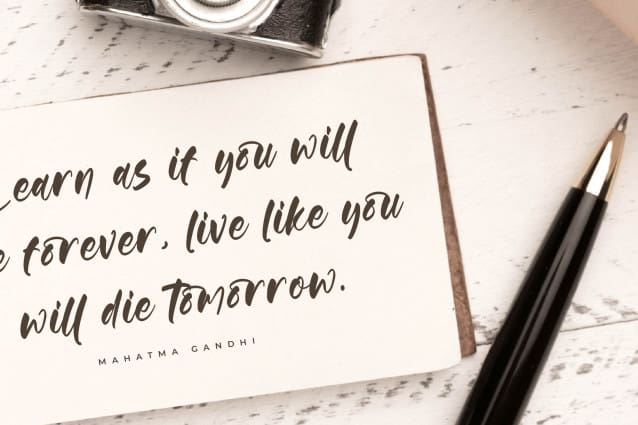 earn as if you will
forever, live like you
will die tomorrow.
MAHATMA GANDHI